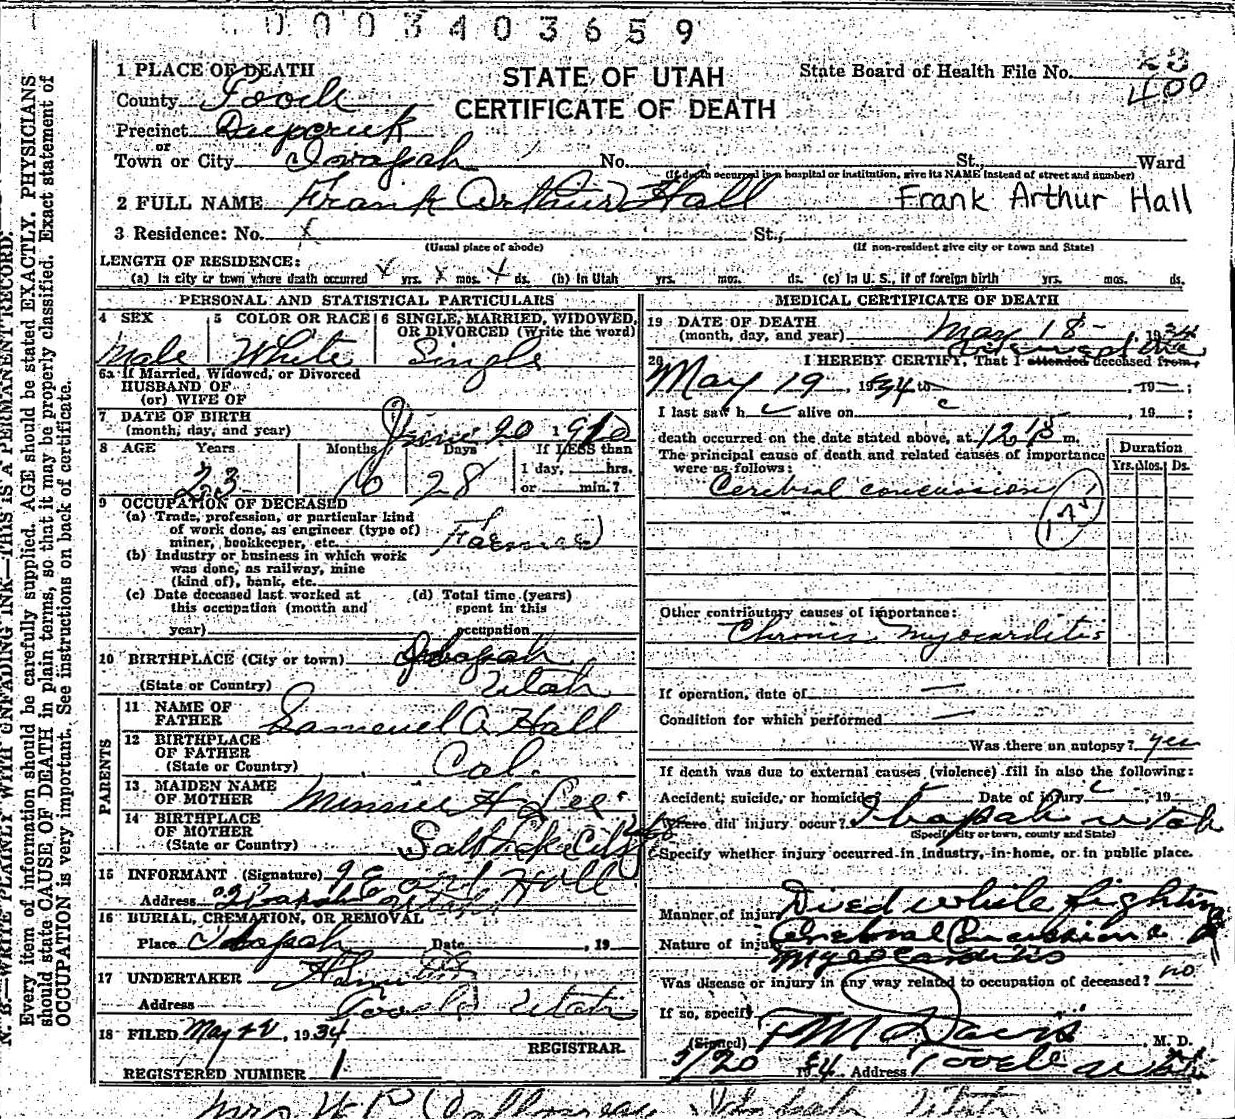 0003403659
STATE OF UTAH
CERTIFICATE OF DEATH
State Board of Health File No. 23
400
1 PLACE OF DEATH
County Tooele
Precinct Deepcreek
or
Town or City Ibapah No. St., Ward
(If death occurred in a hospital or institution, give its NAME instead of street and number)
2 FULL NAME Frank Arthur Hall Frank Arthur Hall
3 Residence: No. x St.,
(Usual place of abode) (If non-resident give city or town and State)
LENGTH OF RESIDENCE:
(a) In city or town where death occurred x yrs. x mos. x ds. (b) In Utah yrs. mos. ds. (c) In U. S., if of foreign birth yrs. mos. ds.
PERSONAL AND STATISTICAL PARTICULARS
4 SEX 5 COLOR OR RACE 6 SINGLE, MARRIED, WIDOWED,
OR DIVORCED (Write the word)
Male White Single
6a If Married, Widowed, or Divorced
HUSBAND OF
(or) WIFE OF
7 DATE OF BIRTH
(month, day, and year) June 20 1910
8 AGE Years Months Days If LESS than
1 day, hrs.
or min.?
23 10 28
9 OCCUPATION OF DECEASED
(a) Trade, profession, or particular kind
of work done, as engineer (type of)
miner, bookkeeper, etc. Farmer
(b) Industry or business in which work
was done, as railway, mine
(kind of), bank, etc.
(c) Date deceased last worked at
this occupation (month and
year)
(d) Total time (years)
spent in this
occupation
10 BIRTHPLACE (City or town) Ibapah
(State or Country) Utah
PARENTS
11 NAME OF
FATHER Samuel A Hall
12 BIRTHPLACE
OF FATHER
(State or Country) Cal.
13 MAIDEN NAME
OF MOTHER Minnie H Lee
14 BIRTHPLACE
OF MOTHER
(State or Country) Salt Lake City
15 INFORMANT (Signature) Hall
Address Ibapah Utah
16 BURIAL, CREMATION, OR REMOVAL
Place Ibapah Date , 19
17 UNDERTAKER
Address Tooele Utah
18 FILED May , 1934
REGISTRAR.
REGISTERED NUMBER 1
MEDICAL CERTIFICATE OF DEATH
19 DATE OF DEATH
(month, day, and year) May 18 - 1934
20 I HEREBY CERTIFY, That I attended deceased from,
May 19 1934 to , 19 ;
I last saw h alive on , 19 ;
death occurred on the date stated above, at 12 15 m.
The principal cause of death and related causes of importance
were as follows:
Duration
Yrs. Mos. Ds.
Cerebral concussion
Other contributory causes of importance:
Chronic Myocarditis
If operation, date of —
Condition for which performed —
Was there an autopsy? yes
If death was due to external causes (violence) fill in also the following:
Accident, suicide, or homicide? Date of injury , 19
Where did injury occur? Ibapah Utah
(Specify city or town, county and State)
Specify whether injury occurred in industry, in home, or in public place.
Manner of injury Died while fighting
Nature of injury Cerebral Concussion &
Myocarditis
Was disease or injury in any way related to occupation of deceased? no
If so, specify
(Signed) F M Davis , M. D.
5/20 1934 Address Tooele Utah
N. B.—WRITE PLAINLY WITH UNFADING INK—THIS IS A PERMANENT RECORD.
Every item of information should be carefully supplied. AGE should be stated EXACTLY. PHYSICIANS
should state CAUSE OF DEATH in plain terms, so that it may be properly classified. Exact statement of
OCCUPATION is very important. See instructions on back of certificate.
Mrs W P Calloway Ibapah Utah